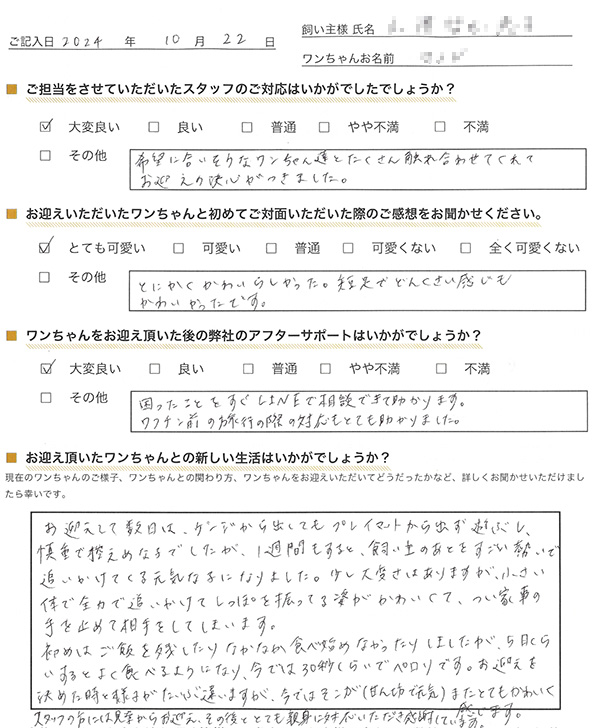 ご記入日 2024 年 10 月 22 日
飼い主様 氏名
ワンちゃんお名前
■ ご担当をさせていただいたスタッフのご対応はいかがでしたでしょうか？
☑ 大変良い □ 良い □ 普通 □ やや不満 □ 不満
□ その他
希望に合いそうなワンちゃん達とたくさん触れ合わせてくれて
お迎えの決心がつきました。
■ お迎えいただいたワンちゃんと初めてご対面いただいた際のご感想をお聞かせください。
☑ とても可愛い □ 可愛い □ 普通 □ 可愛くない □ 全く可愛くない
□ その他
とにかくかわいらしかった。短足でどんくさい感じも
かわいかったです。
■ ワンちゃんをお迎え頂いた後の弊社のアフターサポートはいかがでしょうか？
☑ 大変良い □ 良い □ 普通 □ やや不満 □ 不満
□ その他
困ったことをすぐLINEで相談できて助かります。
ワクチン前の旅行の際の対応もとても助かりました。
■ お迎え頂いたワンちゃんとの新しい生活はいかがでしょうか？
現在のワンちゃんのご様子、ワンちゃんとの関わり方、ワンちゃんをお迎えいただいてどうだったかなど、詳しくお聞かせいただけまし
たら幸いです。
お迎えして数日は、ケージから出してもプレイマットから出ず遊ぶし、
慎重で控えめな子でしたが、1週間もすると、飼い主のあとをすごい勢いで
追いかけてくる元気な子になりました。少し大変さはありますが、小さい
体で全力で追いかけてしっぽを振ってる姿がかわいくて、つい家事の
手を止めて相手をしてしまいます。
初めはご飯を残したりなかなか食べ始めなかったりしましたが、5日くら
いするとよく食べるようになり、今では30秒くらいでペロリです。お迎えを
決めた時と様子がだいぶ違いますが、今ではそこが(甘えん坊で元気)またとてもかわいく
感じます。
スタッフの方には見学からお迎え、その後ととても親身に対応いただき感謝しています。